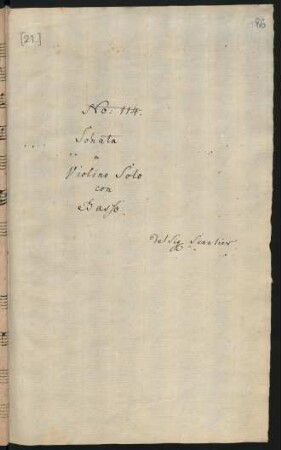 [21.]
86
No. 114.
Sonata
a
Violino Solo
con
Basso.
del Sig.